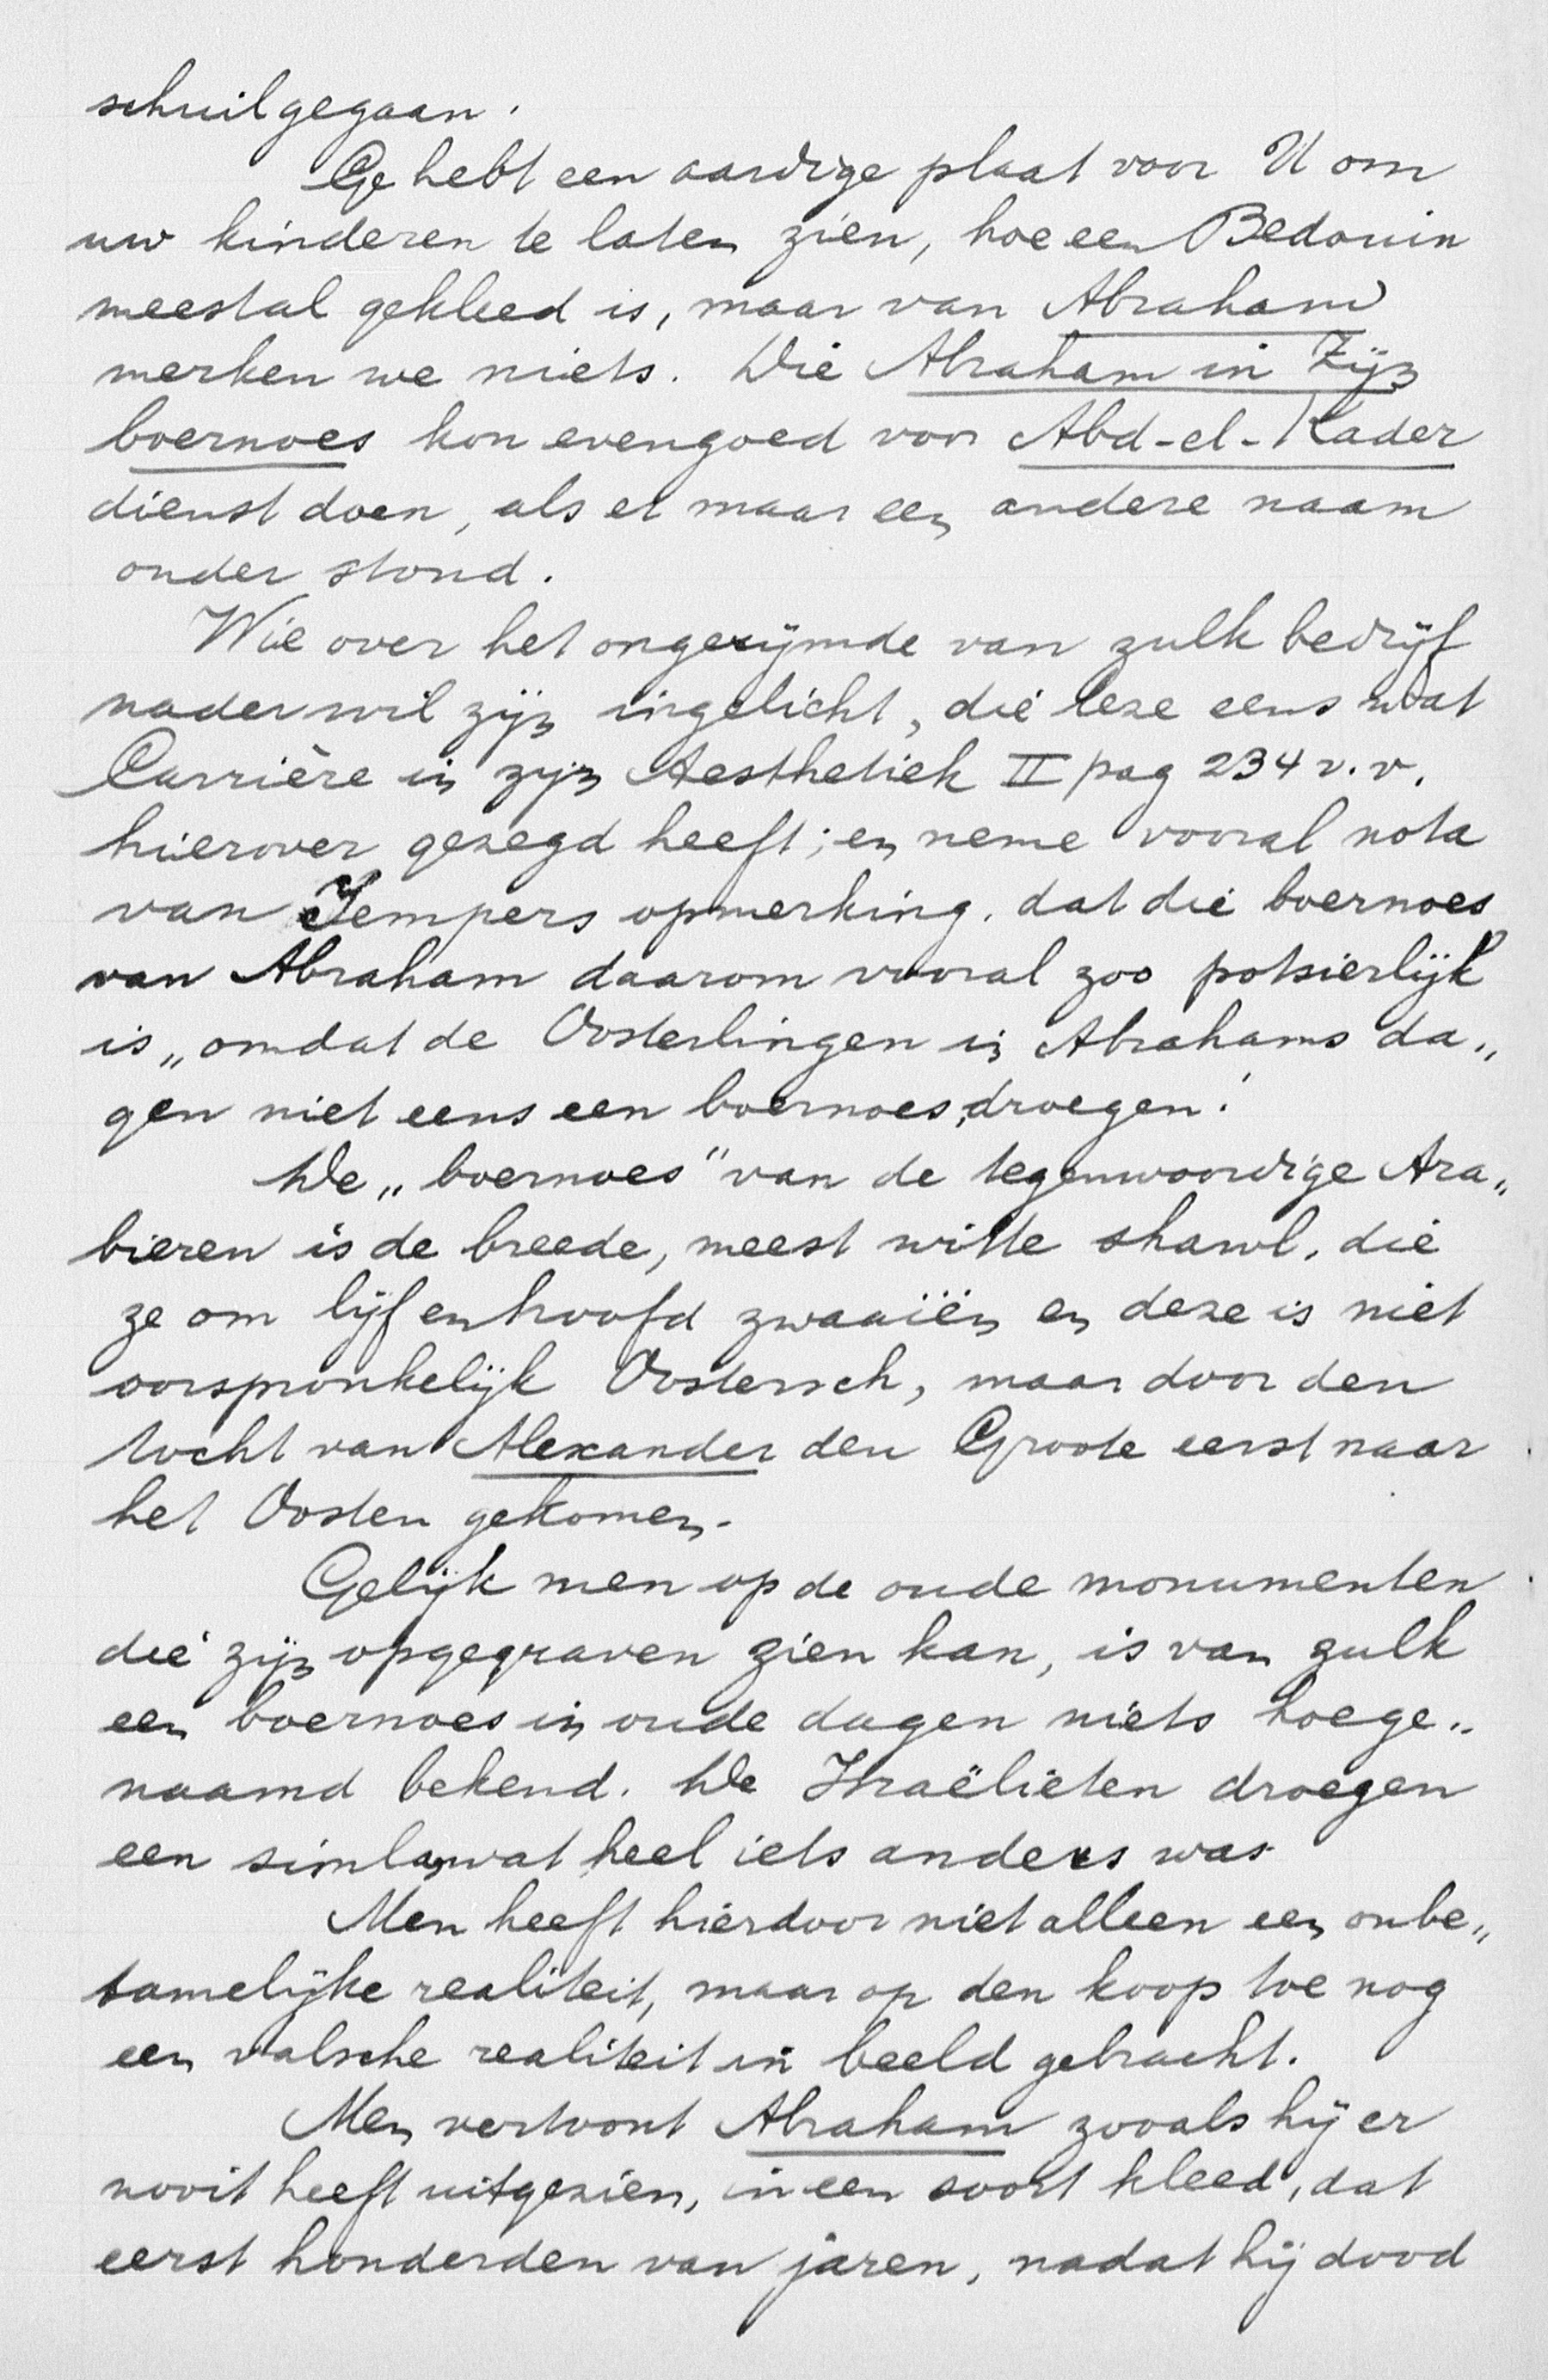 schuilgegaan.
Ge hebt een aardige plaat voor U om
uw kinderen te laten zien, hoe een Bedouin
meestal gekleed is, maar van Abraham
merken we niets. Die Abraham in Zijn
boernoes kon evengoed voor Abd-el-Kader
dienst doen, als er maar een andere naam
onder stond.
Wie over het ongerijmde van zulk bedrijf
nader wil zijn ingelicht, die leze eens wat
Carrière in zijn Aesthetiek II pag 234 v.v.
hierover gezegd heeft; en neme vooral nota
van Sempers opmerking, dat die boernoes
van Abraham daarom vooral zoo potsierlijk
is „omdat de Oosterlingen in Abrahams da„
gen niet eens een boernoes droegen."
De „boernoes" van de tegenwoordige Ara„
bieren is de breede, meest witte shawl, die
ze om lijf en hoofd zwaaiën en deze is niet
oorspronkelijk Oostersch, maar door den
tocht van Alexander den Groote eerst naar
het Oosten gekomen.
Gelijk men op de oude monumenten
die zijn opgegraven zien kan, is van zulk
een boernoes in oude dagen niets hoege„
naamd bekend. De Israëlieten droegen
een simla, wat heel iets anders was
Men heeft hierdoor niet alleen een onbe„
tamelijke realiteit, maar op den koop toe nog
een valsche realiteit in beeld gebracht.
Men vertoont Abraham zooals hij er
nooit heeft uitgezien, in een soort kleed, dat
eerst honderden van jaren, nadat hij dood